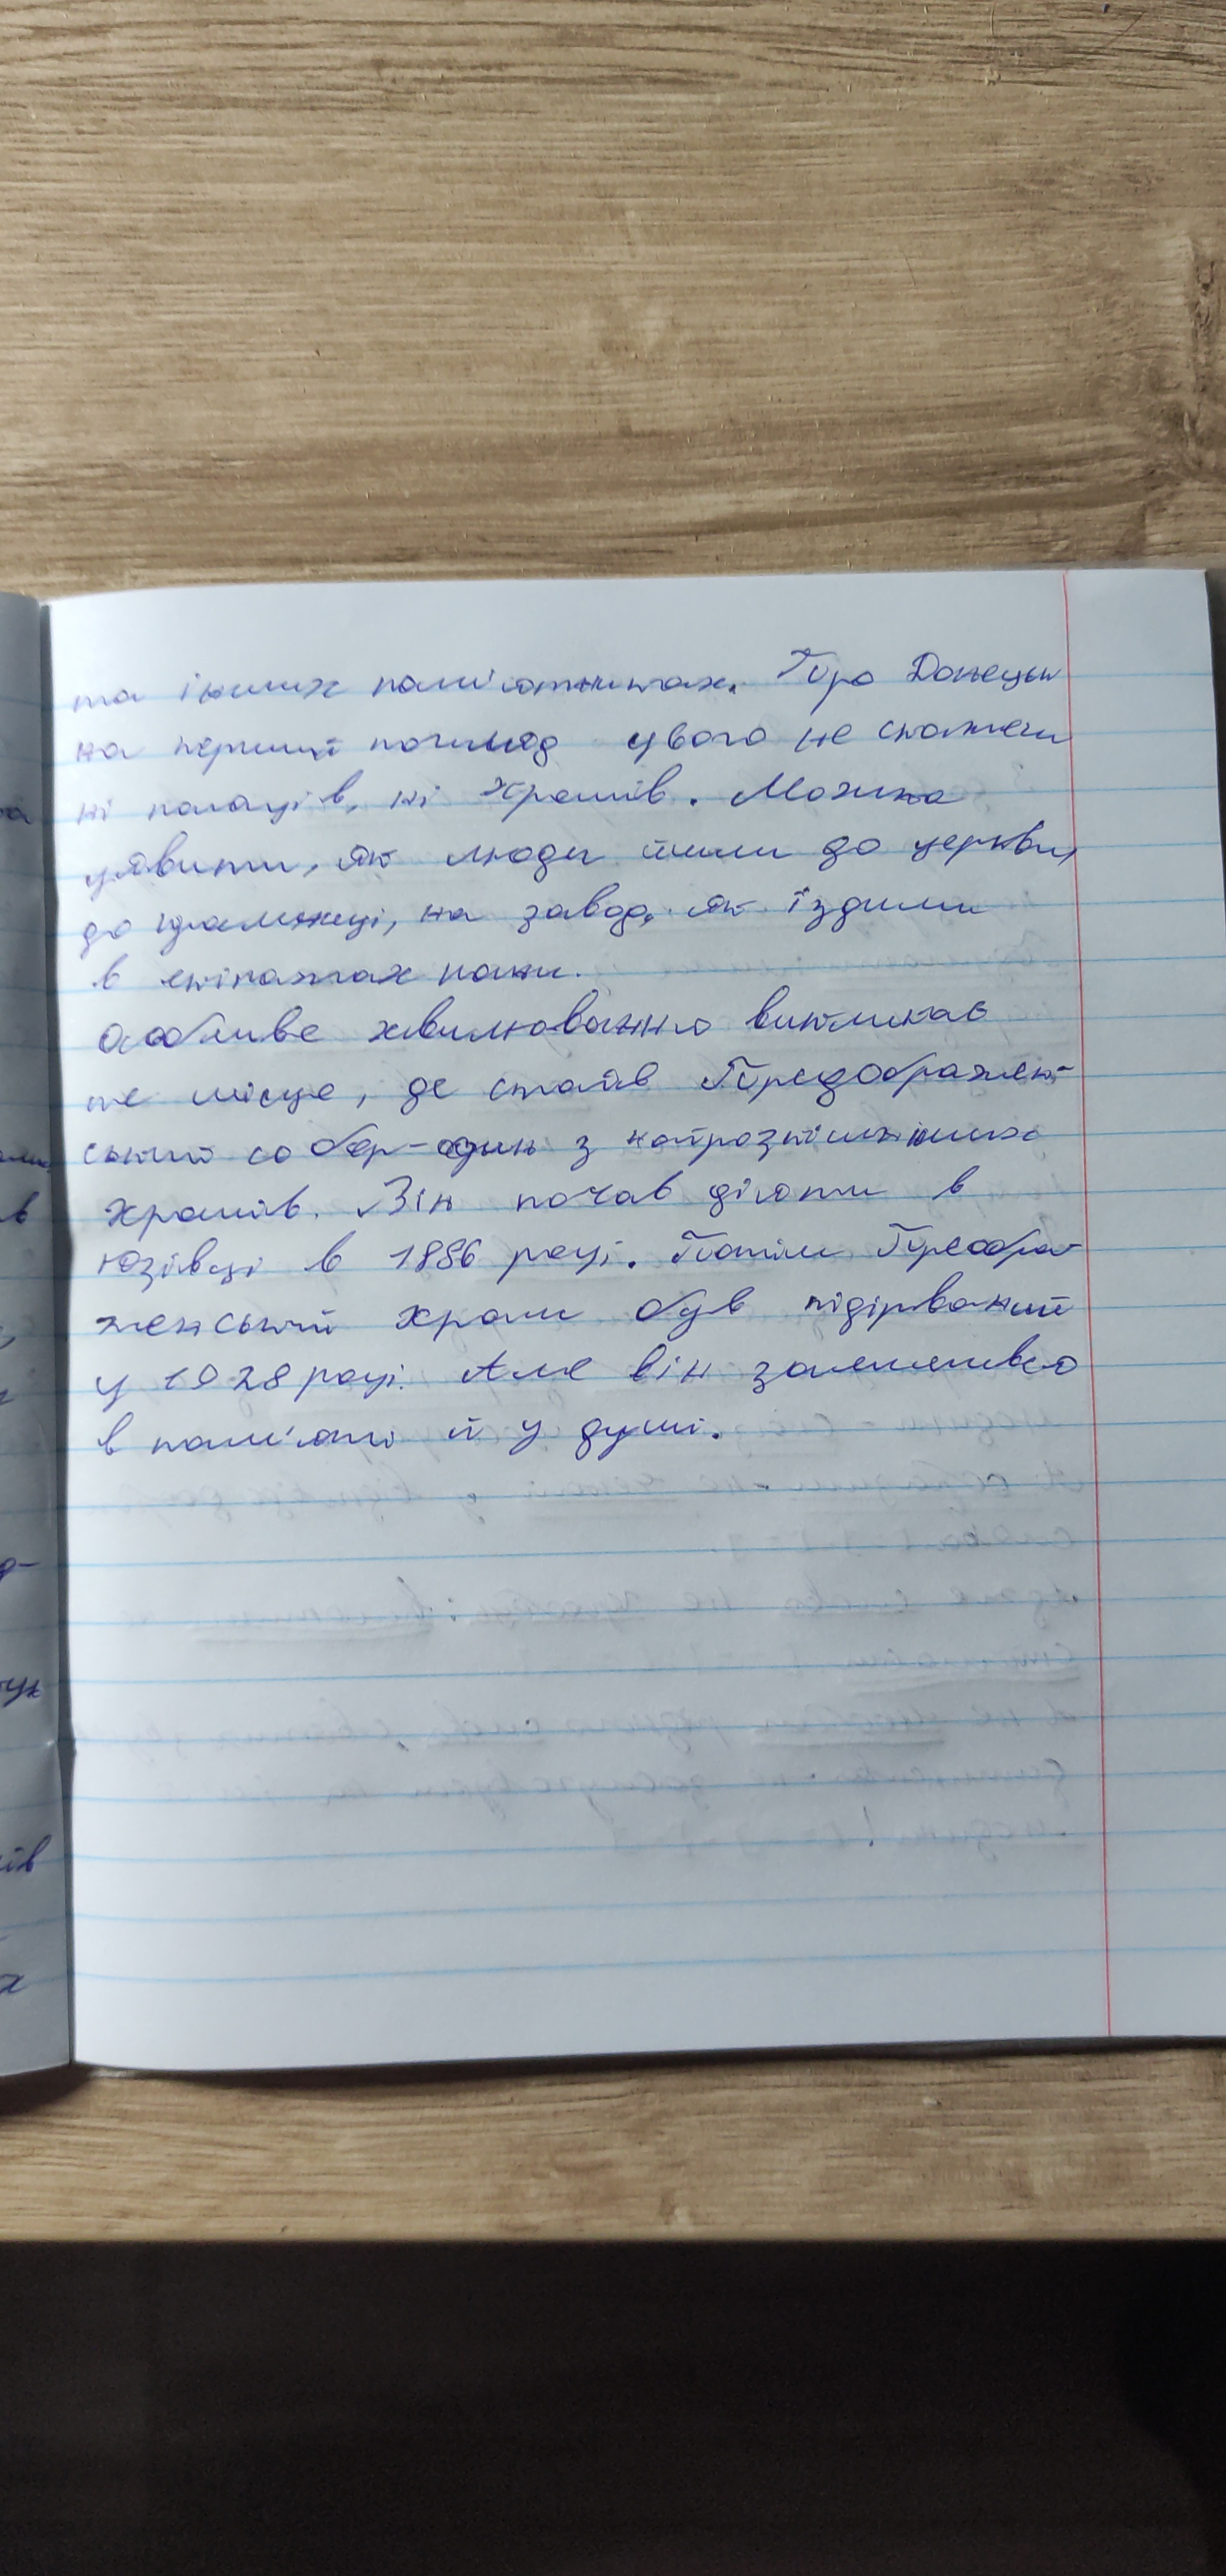 та інших пам'ятниках. Про Донецьк
на перший погляд цього не скажеш
ні палаців, ні храмів. Можна
уявити, як люди йшли до церкви,
до крамниці, на завод, як їздили
в екіпажах пани.
Особливе хвилювання викликає
те місце, де стояв Преображен-
ський собор-один з найрозкішніших
храмів. Він почав діяти в
Юзівці в 1886 році. Потім Преобра-
женський храм був підірваний
у 1928 році. Але він залишився
в пам'яті й у душі.